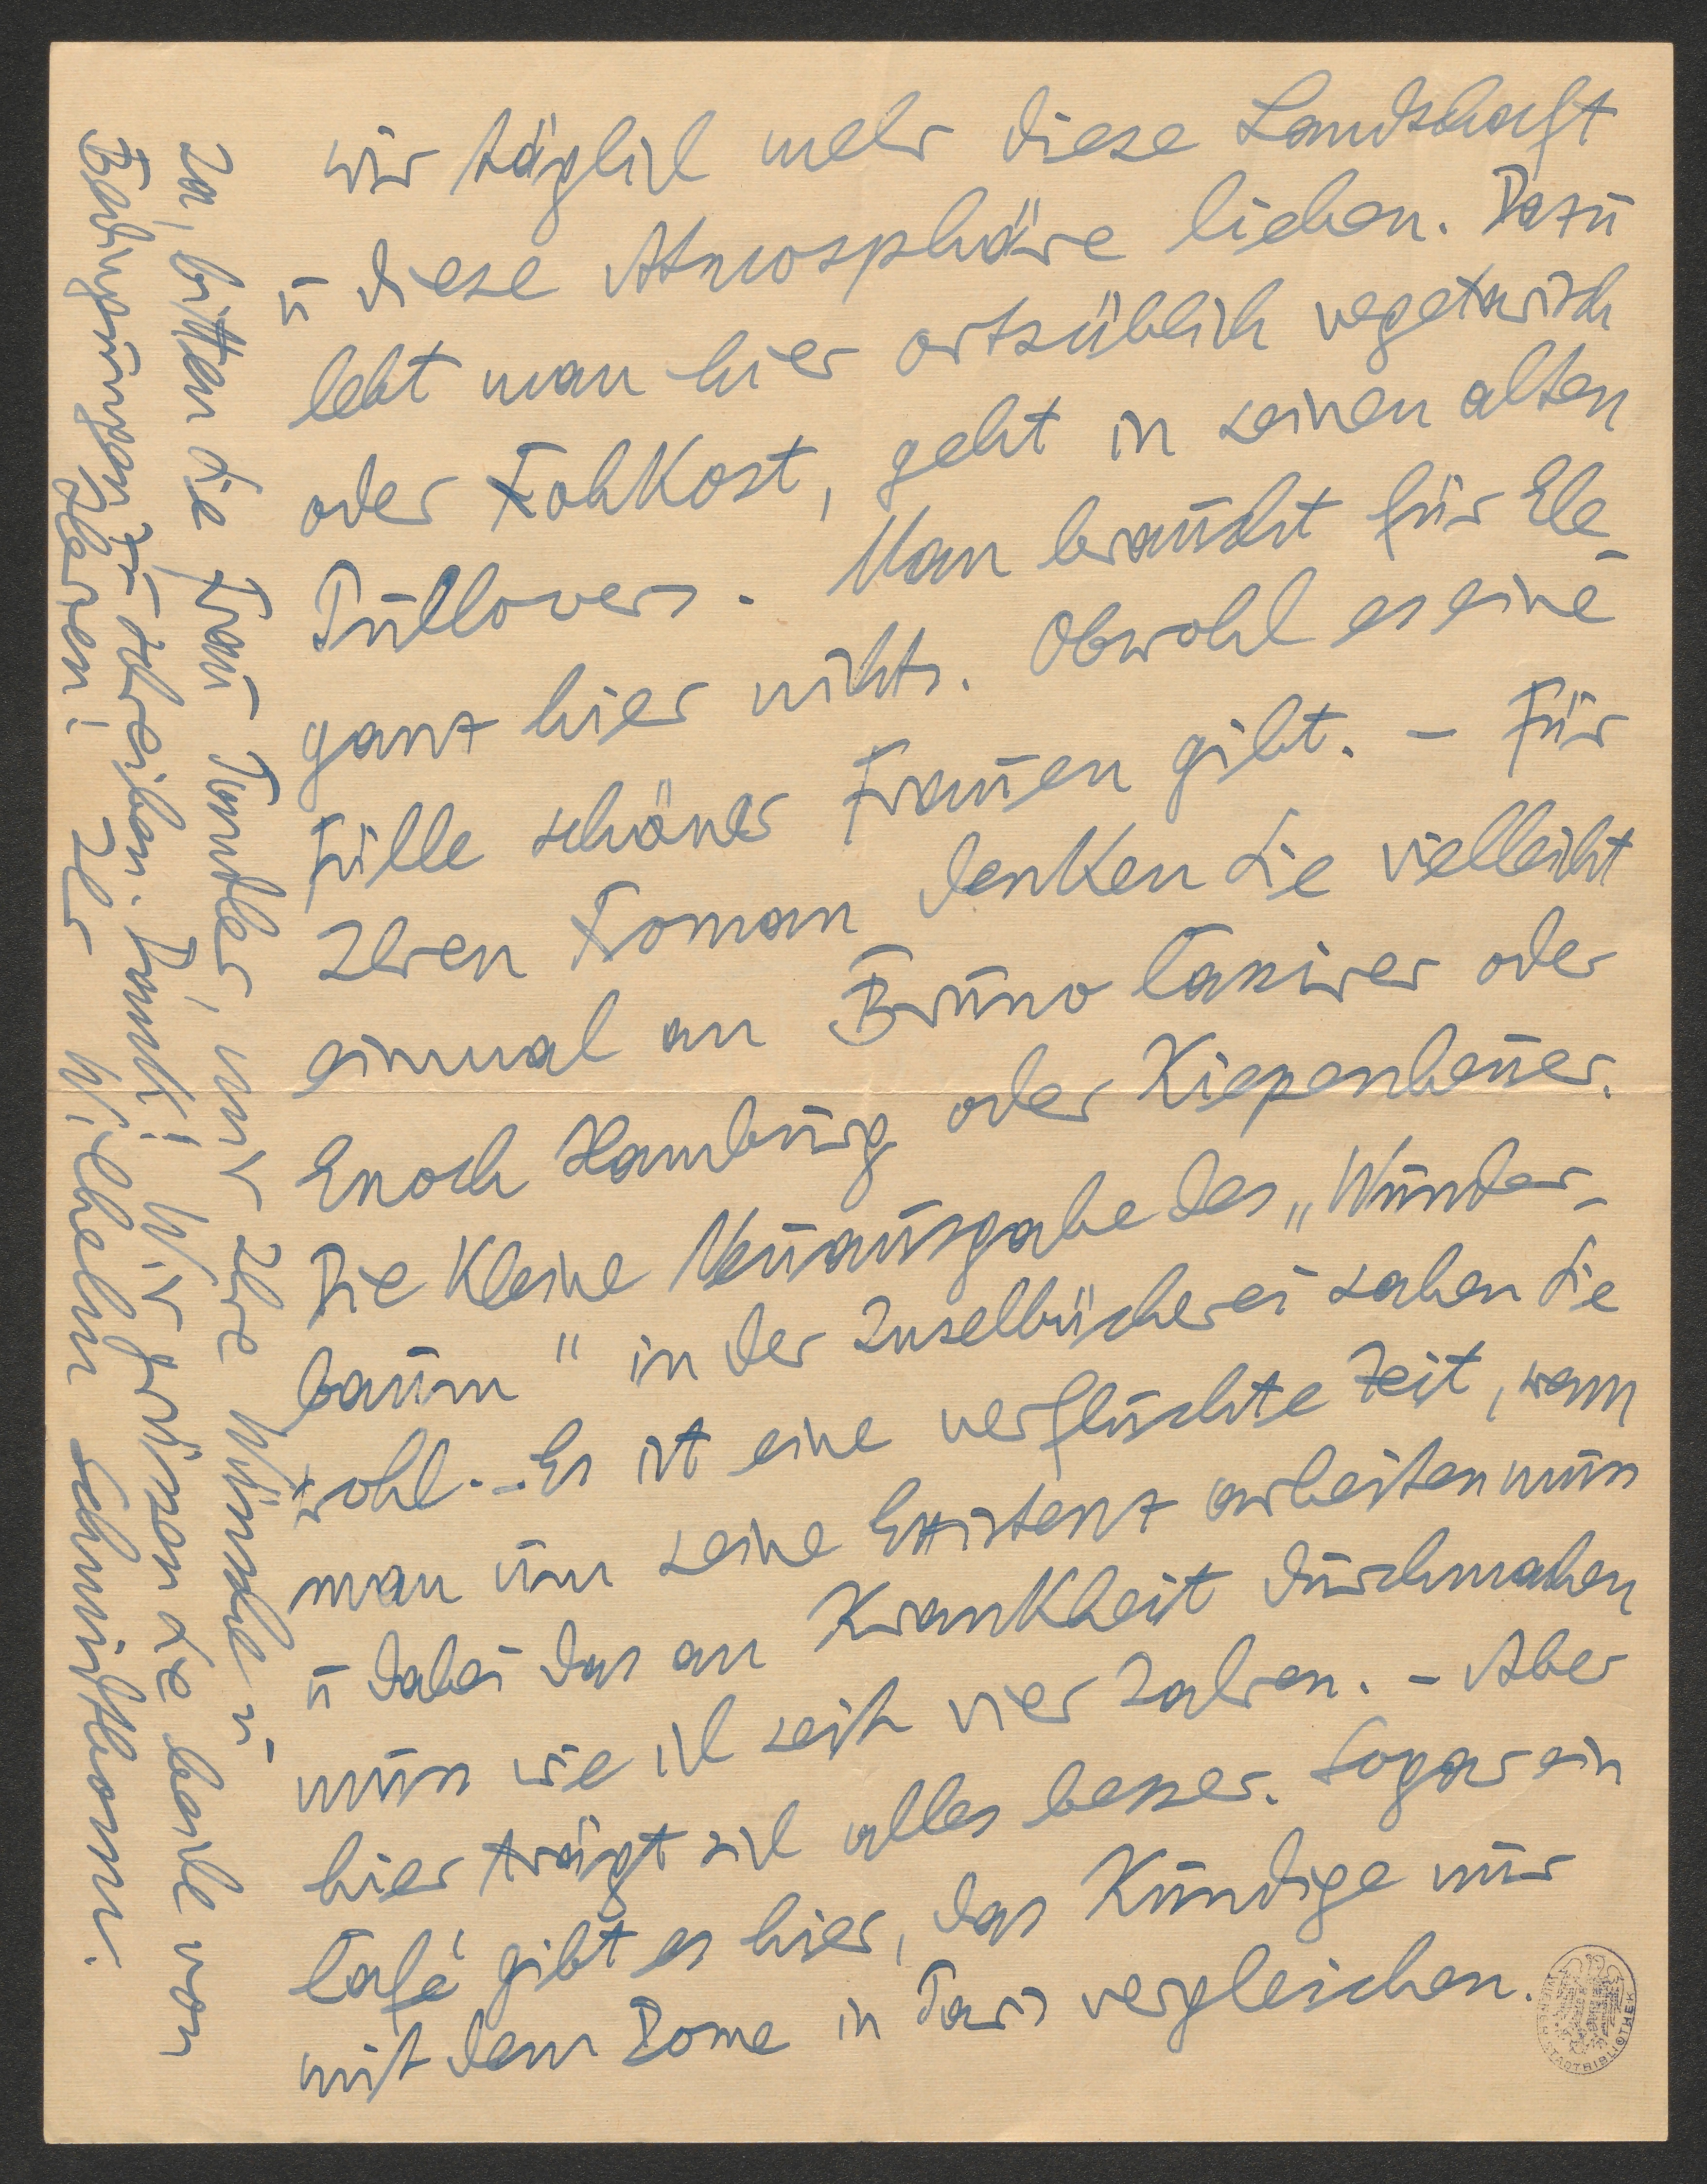 wir täglich mehr diese Landschaft
u diese Atmosphäre lieben. Dazu
lebt man hier ortsüblich vegetarisch
oder Rohkost, geht in seinen alten
Pullovers. Man braucht für Ele-
ganz hier nichts. Obwohl es eine
Fülle schöner Frauen gibt. – Für
Ihren Roman denken Sie vielleicht
einmal an Bruno Cassirer oder
Enoch Hamburg oder Kiepenheuer.
Die kleine Neuausgabe des „Wunder-
baum" in der Inselbücherei sahen Sie
wohl. – Es ist eine verfluchte Zeit, wenn
man um seine Existenz arbeiten muss
u dabei das an Krankheit durchmachen
muss wie ich seit vier Jahren. – Aber
hier trägt sich alles besser. Sogar ein
Café gibt es hier, das Kundige nur
mit dem Dome in Paris vergleichen.
Ja, bitten Sie Frau Tumler, mir Ihre Wünsche u
Bedingungen zu schreiben. Dank! Wir grüssen Sie beide von
Herzen! Ihr Wilhelm Schmidtbonn.
WIENER STADTBIBLIOTHEK